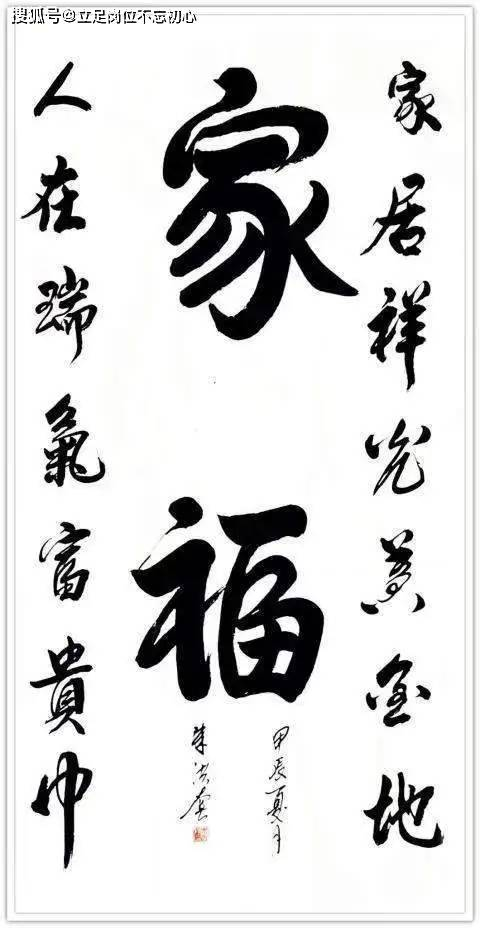 搜狐号@立足岗位不忘初心
家居祥光黄金地
家福
人在瑞氣富貴中
甲辰夏月
朱洪